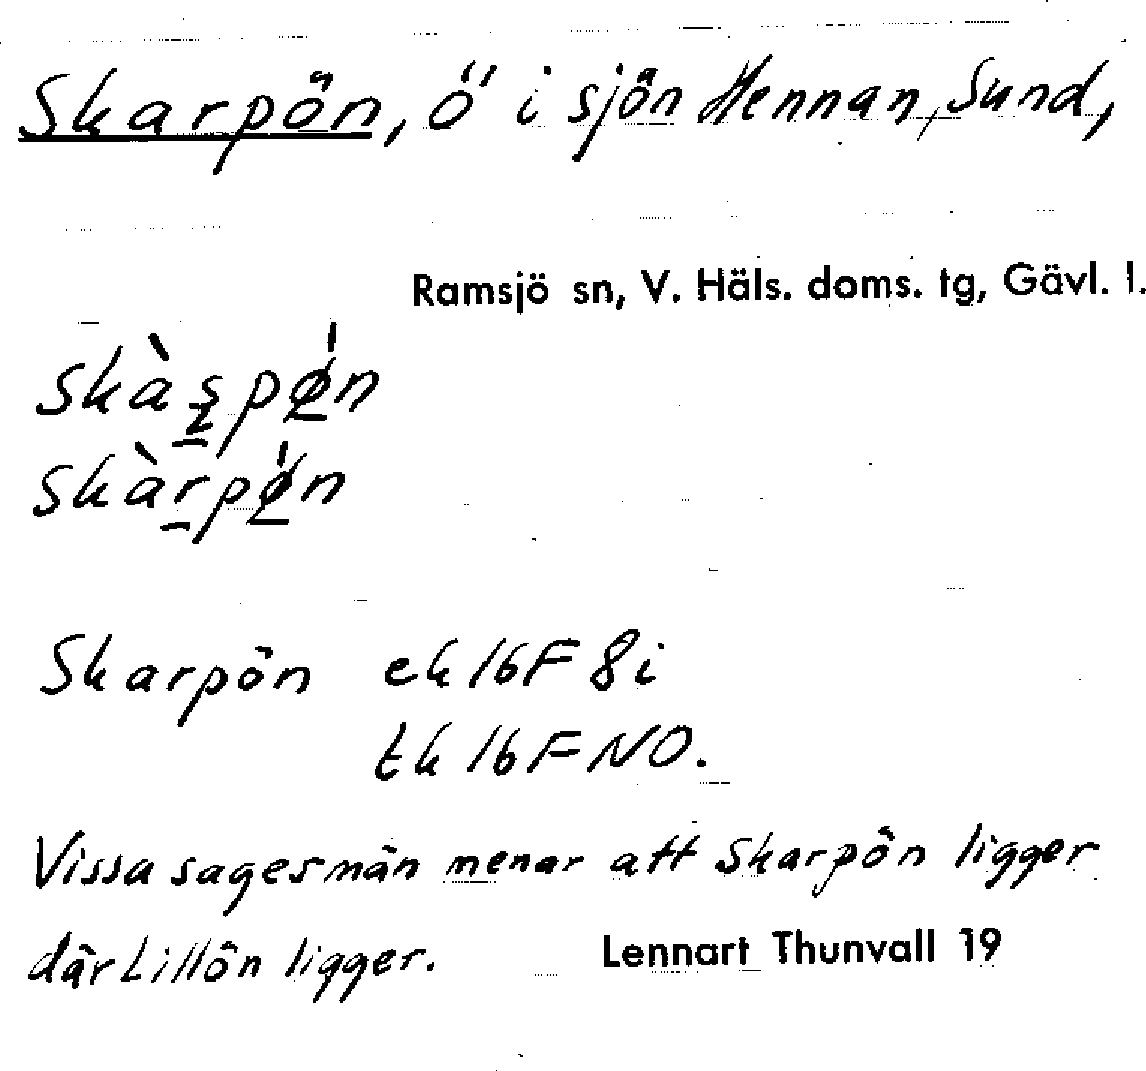 Skarpön, ö i sjön Hennan, Sund,
Ramsjö sn, V. Häls. doms. tg, Gävl. l.
Skarpön ek 16F 8i
tk 16F NO.
Vissa sagesmän menar att Skarpön ligger
där Lillön ligger.
Lennart Thunvall 19